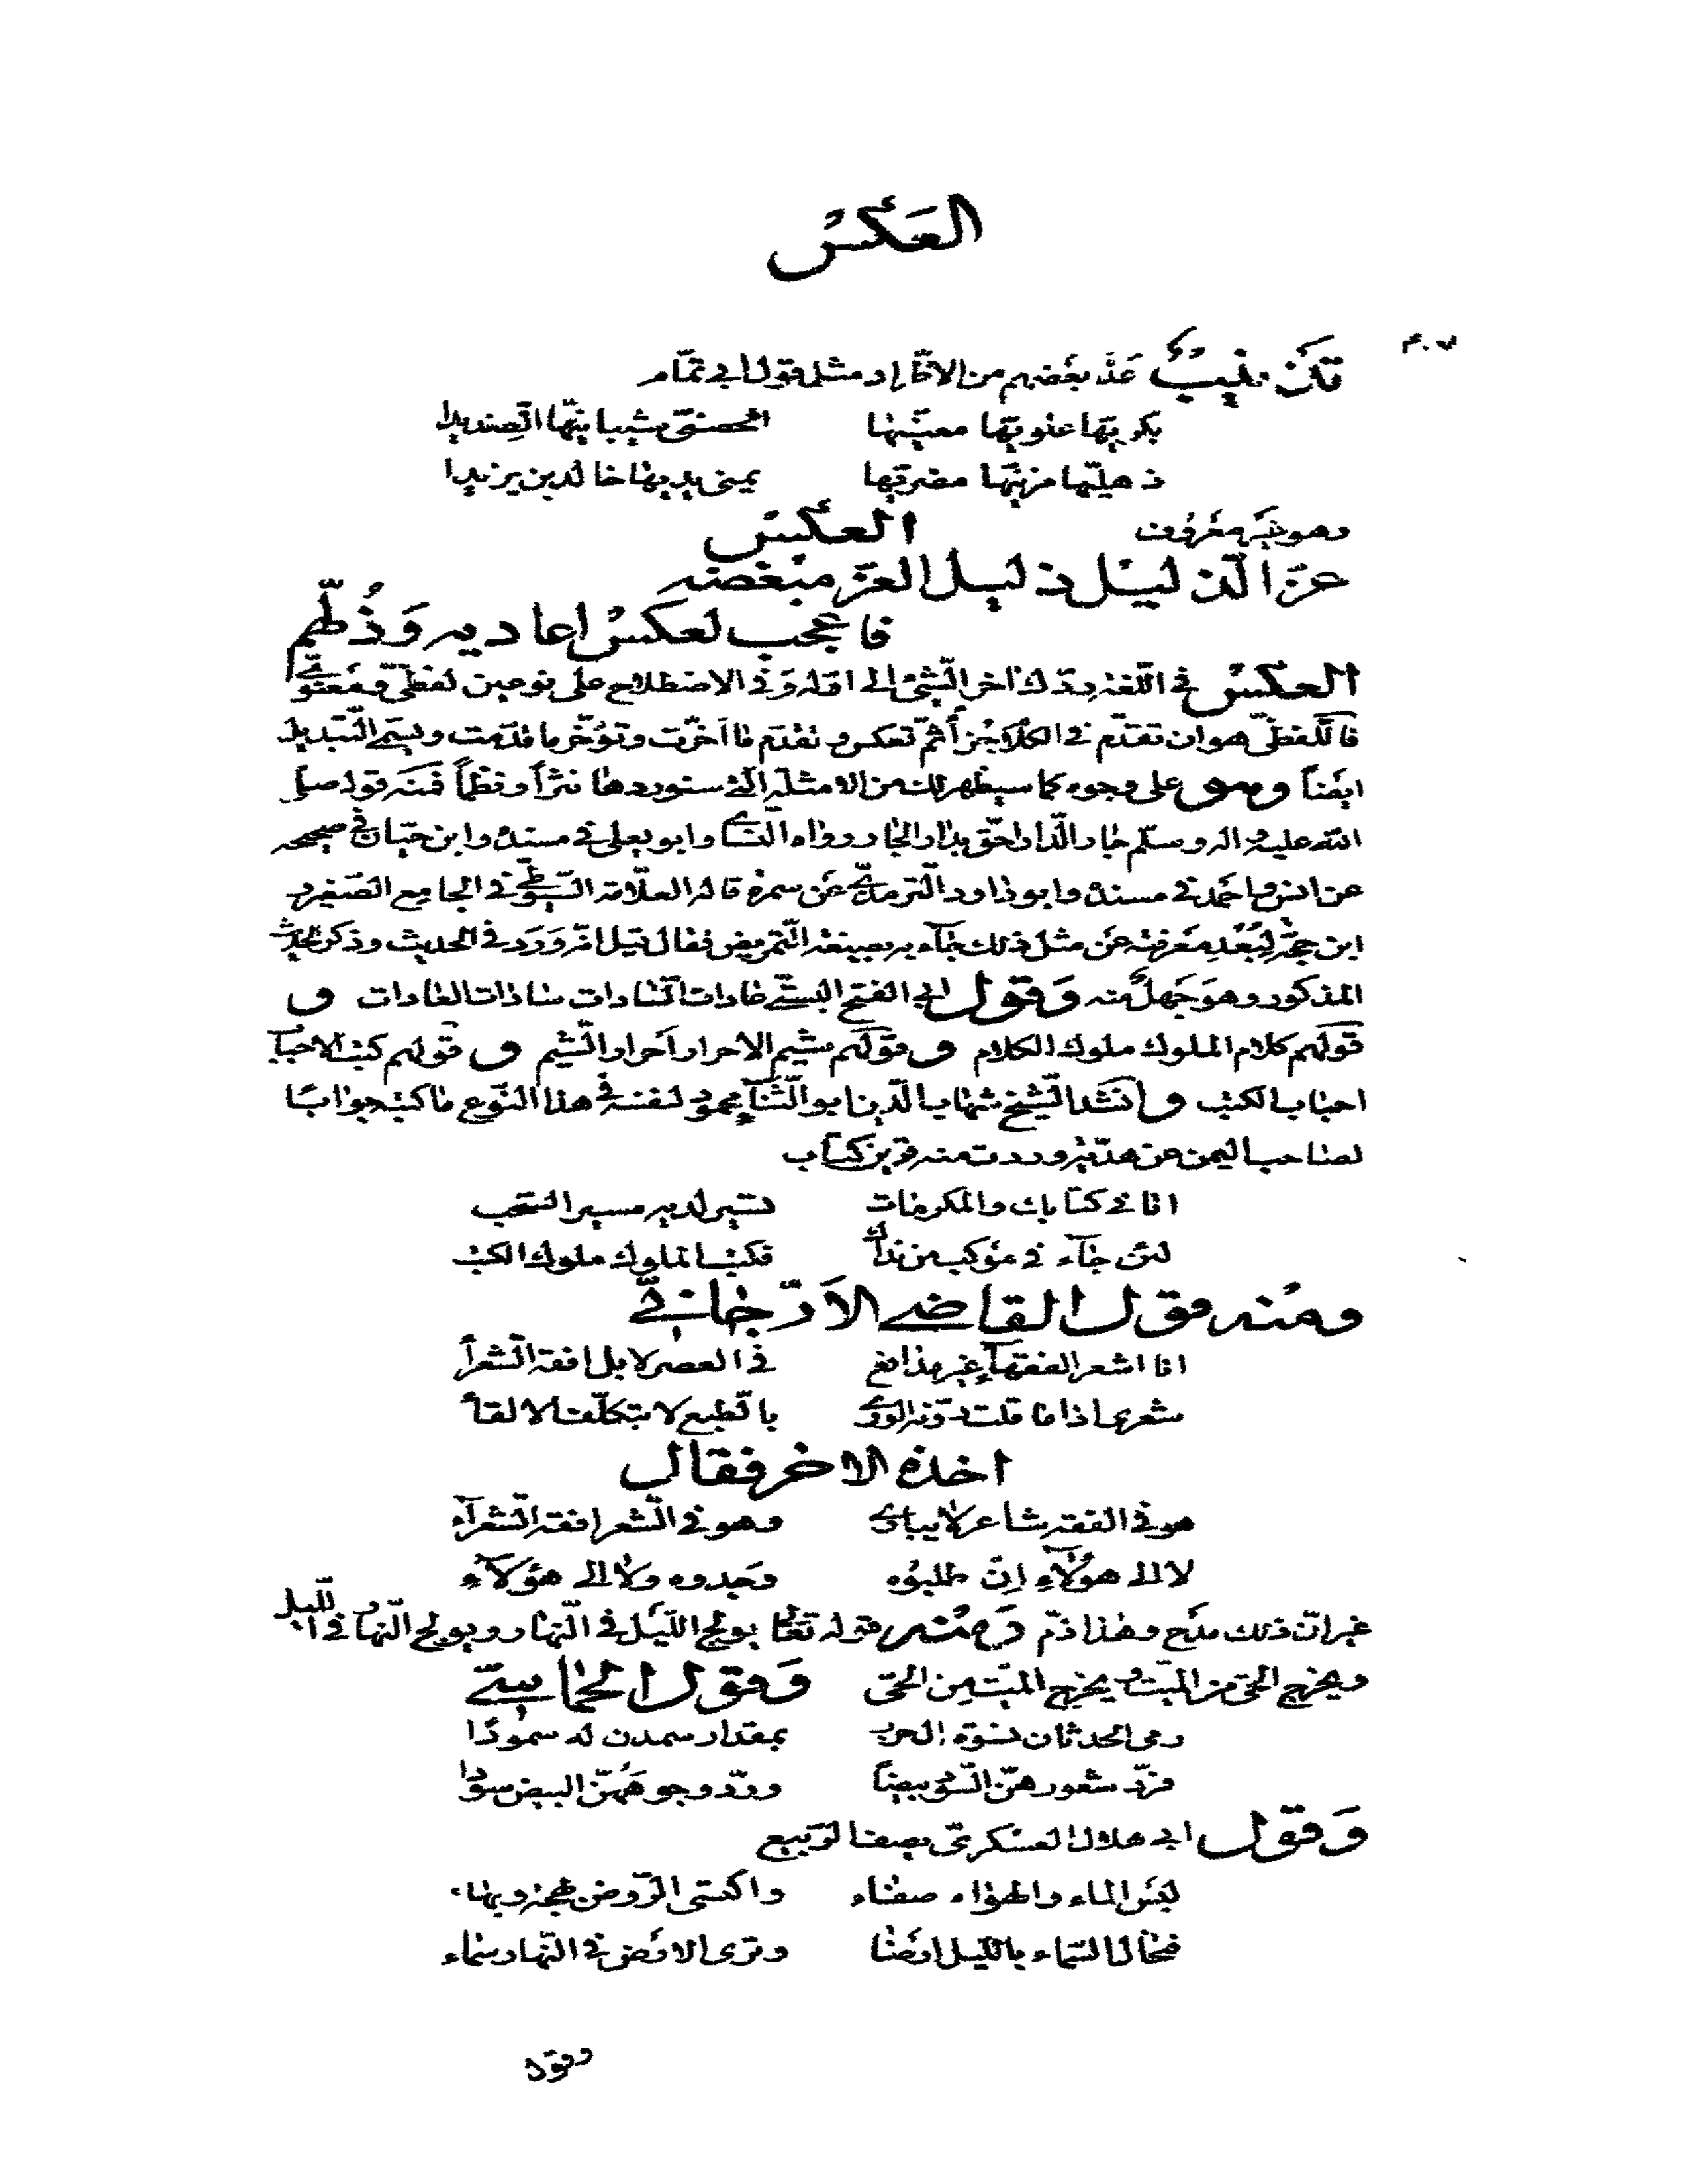 العكس
تذنيب عدّ بعضهم من الاطّراد مثل قول ابي تمّام
بكريّها علويّها صعبيّها الحصنىّ شيبانيّها الصّنديدا
ذهليّها مرّيّها مضريّها يمنى يديها خالد بن يزيدا
وهو شبه معروف العكس
عزّ الذّليل ذليل العزّ مبغضه
فاعجب لعكس اعاديه وذلّهم
العكس في اللّغة ردّك اخر الشّئ الى اوّله وفي الاصطلاح على نوعين لفظىّ ومعنوىّ
فاللّفظىّ هو ان تقدّم في الكلام جزأ ثمّ تعكس وتقدّم ما اخّرت وتؤخّر ما قدّمت ويسمّى التّبديل
ايضاً وهو على وجوه كما سيظهر لك من الامثلة الّتى سنوردها نثراً ونظماً فمنه قوله صلى
الله عليه واله وسلّم جار الدّار احقّ بدار الجار رواه النّسائى وابو يعلى في مسنده وابن حبّان في صحيحه
عن انس واحمد في مسنده وابو داود والترمذىّ عن سمرة قاله العلّامة السّيوطىّ في الجامع الصّغير و
ابن حجّة لبعد معرفته عن مثل ذلك جآء به بصيغة التّمريض فقال قيل انّه ورد في الحديث وذكر الحديث
المذكور وهو جهل منه وقول ابي الفتح البستّى عادات السّادات سادات العادات و
قولهم كلام الملوك ملوك الكلام و قولهم شيم الاحرار احرار الشّيم و قولهم كتب الاحباب
احباب الكتب و انشد الشّيخ شهاب الدّين ابو الثّنآء محمود لنفسه في هذا النّوع ما كتب جواباً
لصاحب اليمن عن هديّة وردت منه قرين كتاب
اتانى كتابك والمكرمات تسير لديه مسير السّحب
لئن جآء في موكب من نداك فكتب الملوك ملوك الكتب
ومنه قول القاضى الارّجانىّ
انا اشعر الفقهآء غير مدافع في العصر لا بل افقه الشّعرآ
شعرى اذا ما قلت دوّنه الورى بالطّبع لا بتكلّف الالقآ
اخذه الاخر فقال
هو في الفقه شاعر لا يبارى وهو في الشّعر افقه الشّعرآء
لا الى هؤلآء ان طلبوه وجدوه ولا الى هؤلآء
غير انّ ذلك مدح وهذا ذمّ ومنه قوله تعالى يولج اللّيل في النّهار ويولج النّهار في اللّيل
ويخرج الحىّ من الميّت ويخرج الميّت من الحىّ وقول الحماسىّ
رمى الحدثان نسوة ال حرب بمقدار سمدن له سمودا
فردّ شعورهنّ السّود بيضاً وردّ وجوههنّ البيض سودا
وقول ابي هلال العسكرىّ يصف الرّبيع
لبس الماء والهواء صفاء واكتسى الرّوض بهجة وبهاء
فتخال السّماء بالليل ارضا وترى الارض في النّهار سماء
وقول